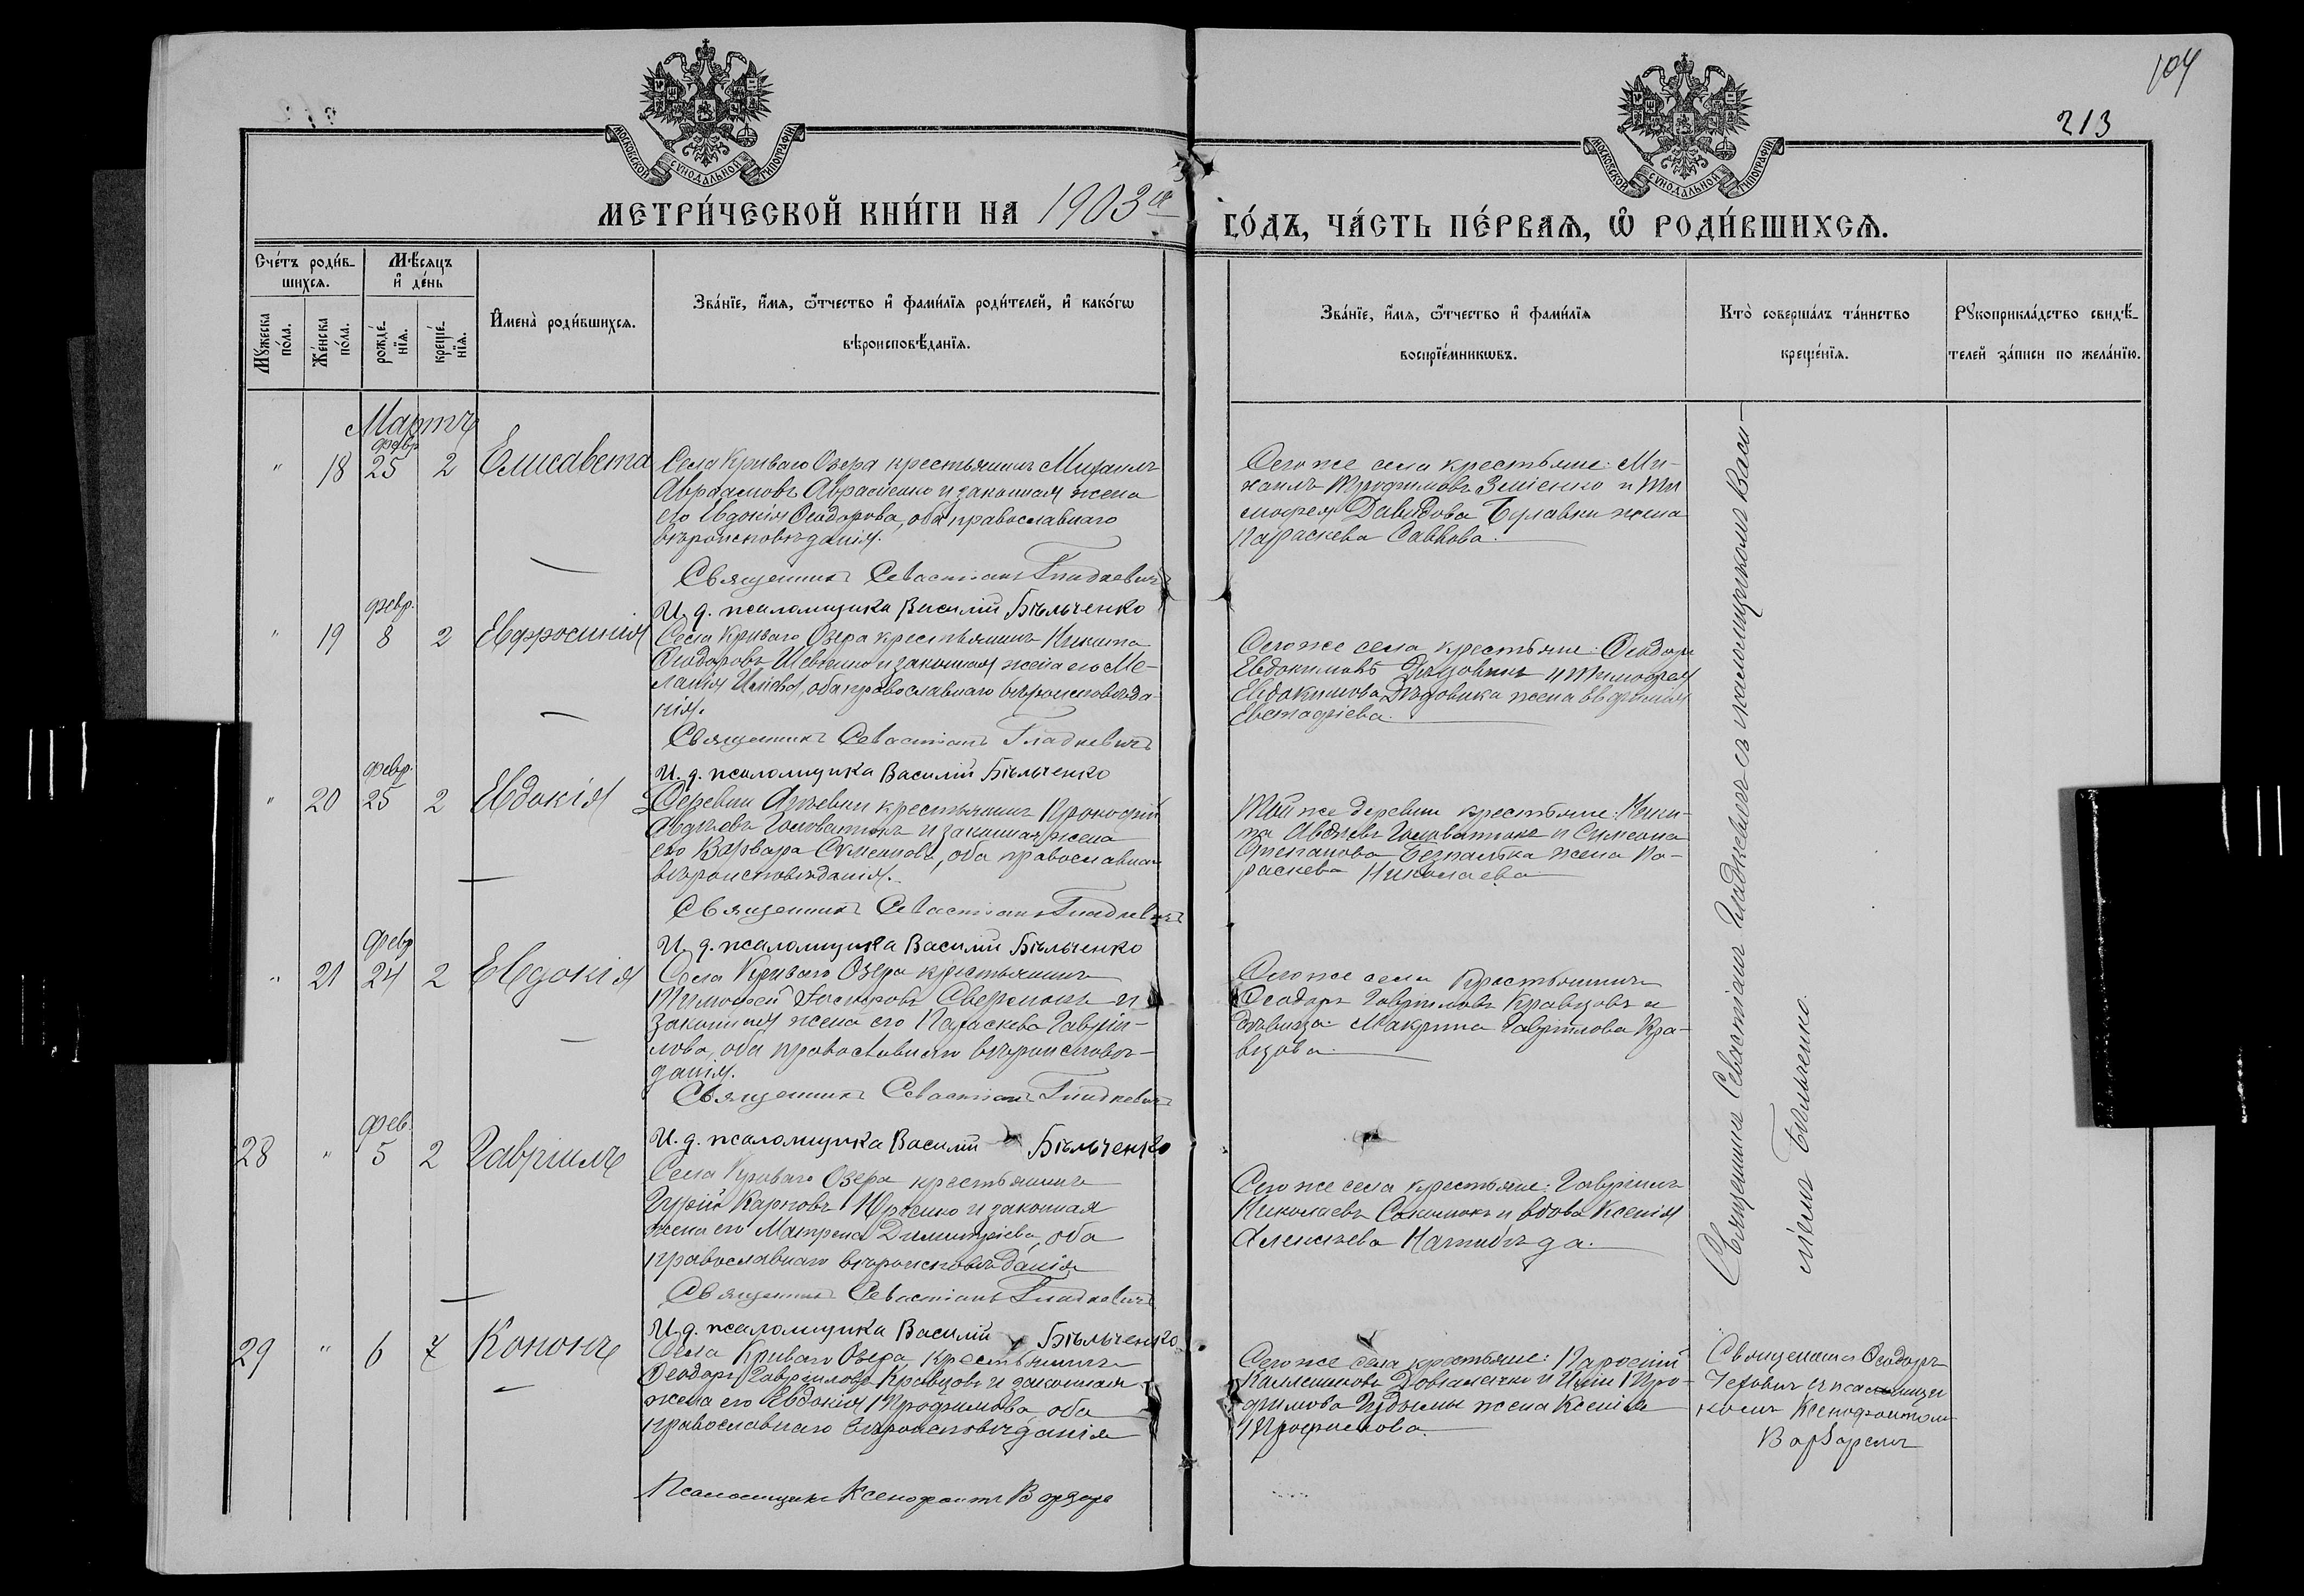 104
213
МОСКОВСКОЙ СѴНОДАЛЬНОЙ ТИПОГРАФІИ
МОСКОВСКОЙ СѴНОДАЛЬНОЙ ТИПОГРАФІИ
МЕТРИ́ЧЕСКОЙ КНИ́ГИ НА 1903й
ГО́ДЪ, ЧА́СТЬ ПЕ́РВАѦ, Ѡ РОДИ́ВШИХСѦ.
Сче́тъ роди́в-
шихся.
Мѣ́сяцъ
и҆ де́нь
Мꙋ́жеска
по́ла.
Же́нска
по́ла.
рожде́-
нїя.
креще́-
нїя.
И҆мена̀ роди́вшихся.
Зва́нїе, и҆́мя, ѻ҆́тчество и҆ фамилїя роди́телей, и҆ како́гѡ
вѣроисповѣ́данїя.
Зва́нїе, и҆́мя, ѻ҆́тчество и҆ фами́лїя
воспрїе́мникѡвъ.
Кто̀ соверша́лъ та́инство
креще́нїя.
Рꙋкоприкла́дство свидѣ́-
телей за́писи по жела́нїю.
Мартъ
февр
" 18 25 2 Елисавета
Села Криваго Озера крестьянинъ Михаилъ
Авраамовъ Авраменко и законная жена
его Евдокія Ѳеодорова, оба православнаго
вѣроисповѣданія.
Священникъ Севастіанъ Гладкевичъ
И. д. псаломщика Василій Бѣльченко
Сего же села крестьяне: Ми-
хаилъ Трофимовъ Зміенко и Ти
моѳея Давидова Булавки жена
Параскева Саввова.
февр.
" 19 8 2 Евфросинія
Села Криваго Озера крестьянинъ Никита
Ѳеодоровъ Шевченко и законная жена его Ме-
ланія Иліева, оба православнаго вѣроисповѣда
нія.
Священникъ Севастіанъ Гладкевичъ
И. д. псаломщика Василій Бѣльченко
Сего же села крестьяне: Ѳеодоръ
Евдокимовъ и Тимоѳея
Евдокимова Дѣдовика жена Евфимія
Евстафіева.
февр.
" 20 25 2 Евдокія
Деревни крестьянинъ Прокофій
Авдѣевъ Головатюкъ и законная жена
его Варвара Симеонова, оба православнаго
вѣроисповѣданія.
Священникъ Севастіанъ Гладкевичъ
И. д. псаломщика Василій Бѣльченко
Той же деревни крестьяне: Ники-
та Авдѣевъ Головатюкъ и Симеона
Степанова Безпалька жена Па-
раскева Николаева
февр
" 21 24 2 Евдокія
Села Криваго Озера крестьянинъ
Тимоѳей Сверлюкъ и
законная жена его Параскева Гаврі-
лова, оба православнаго вѣроисповѣ-
данія.
Священникъ Севастіанъ Гладкевичъ
И. д. псаломщика Василій Бѣльченко
Сего же села крестьянинъ
Ѳеодоръ Гавріиловъ Кравцовъ и
дѣвица Макрина Гавріилова Кра-
вцова
фев.
28 " 5 2 Гавріилъ
Села Криваго Озера крестьянинъ
Гурій Карповъ Юрченко и законная
жена его Матрена Димитріева, оба
православнаго вѣроисповѣданія
Священникъ Севастіанъ Гладкевичъ
И. д. псаломщика Василій Бѣльченко
Сего же села крестьяне: Гавріилъ
Николаевъ Соколюкъ и вдова Ксенія
Алексѣева
Священникъ Севастіанъ Гладкевичъ съ псаломщикомъ Васи-
ліемъ Бѣльченко.
29 " 6 7 Кононъ
Села Криваго Озера крестьянинъ
Ѳеодоръ Гавріиловъ Кравцовъ и законная
жена его Евдокія Трофимова, оба
православнаго вѣроисповѣданія
Псаломщикъ Ксенофонтъ Варзаръ
Сего же села крестьяне:
и Иліи Тро-
фимова жена Ксенія
Священникъ Ѳеодоръ
съ псаломщи
комъ Ксенофонтомъ
Варзаремъ